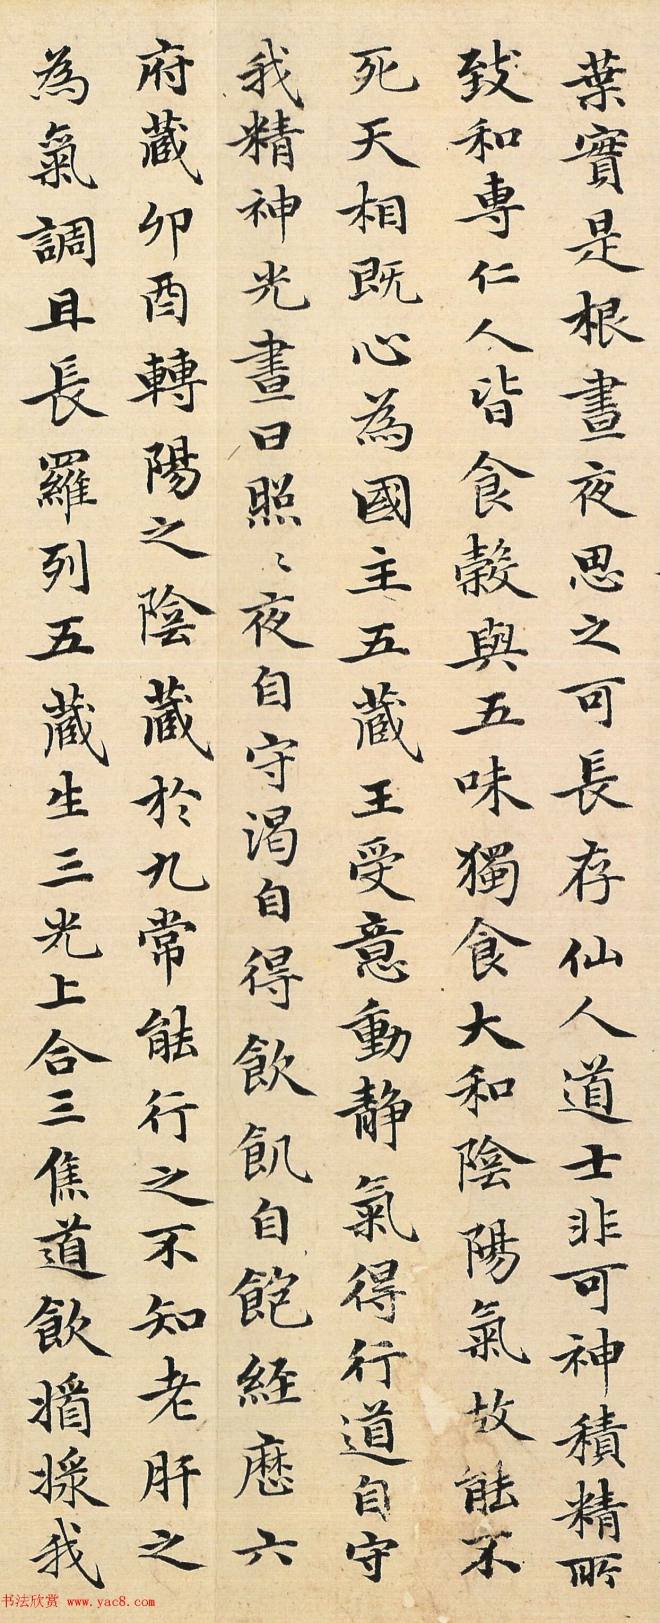 葉實是根晝夜思之可長存仙人道士非可神積精所
致和專仁人皆食穀與五味獨食大和陰陽氣故能不
死天相既心為國主五藏王受意動静氣得行道自守
我精神光晝日照〻夜自守渴自得飲飢自飽經歷六
府藏卯酉轉陽之陰藏於九常能行之不知老肝之
為氣調且長羅列五藏生三光上合三焦道飲醬漿我
书法欣赏 www.yac8.com